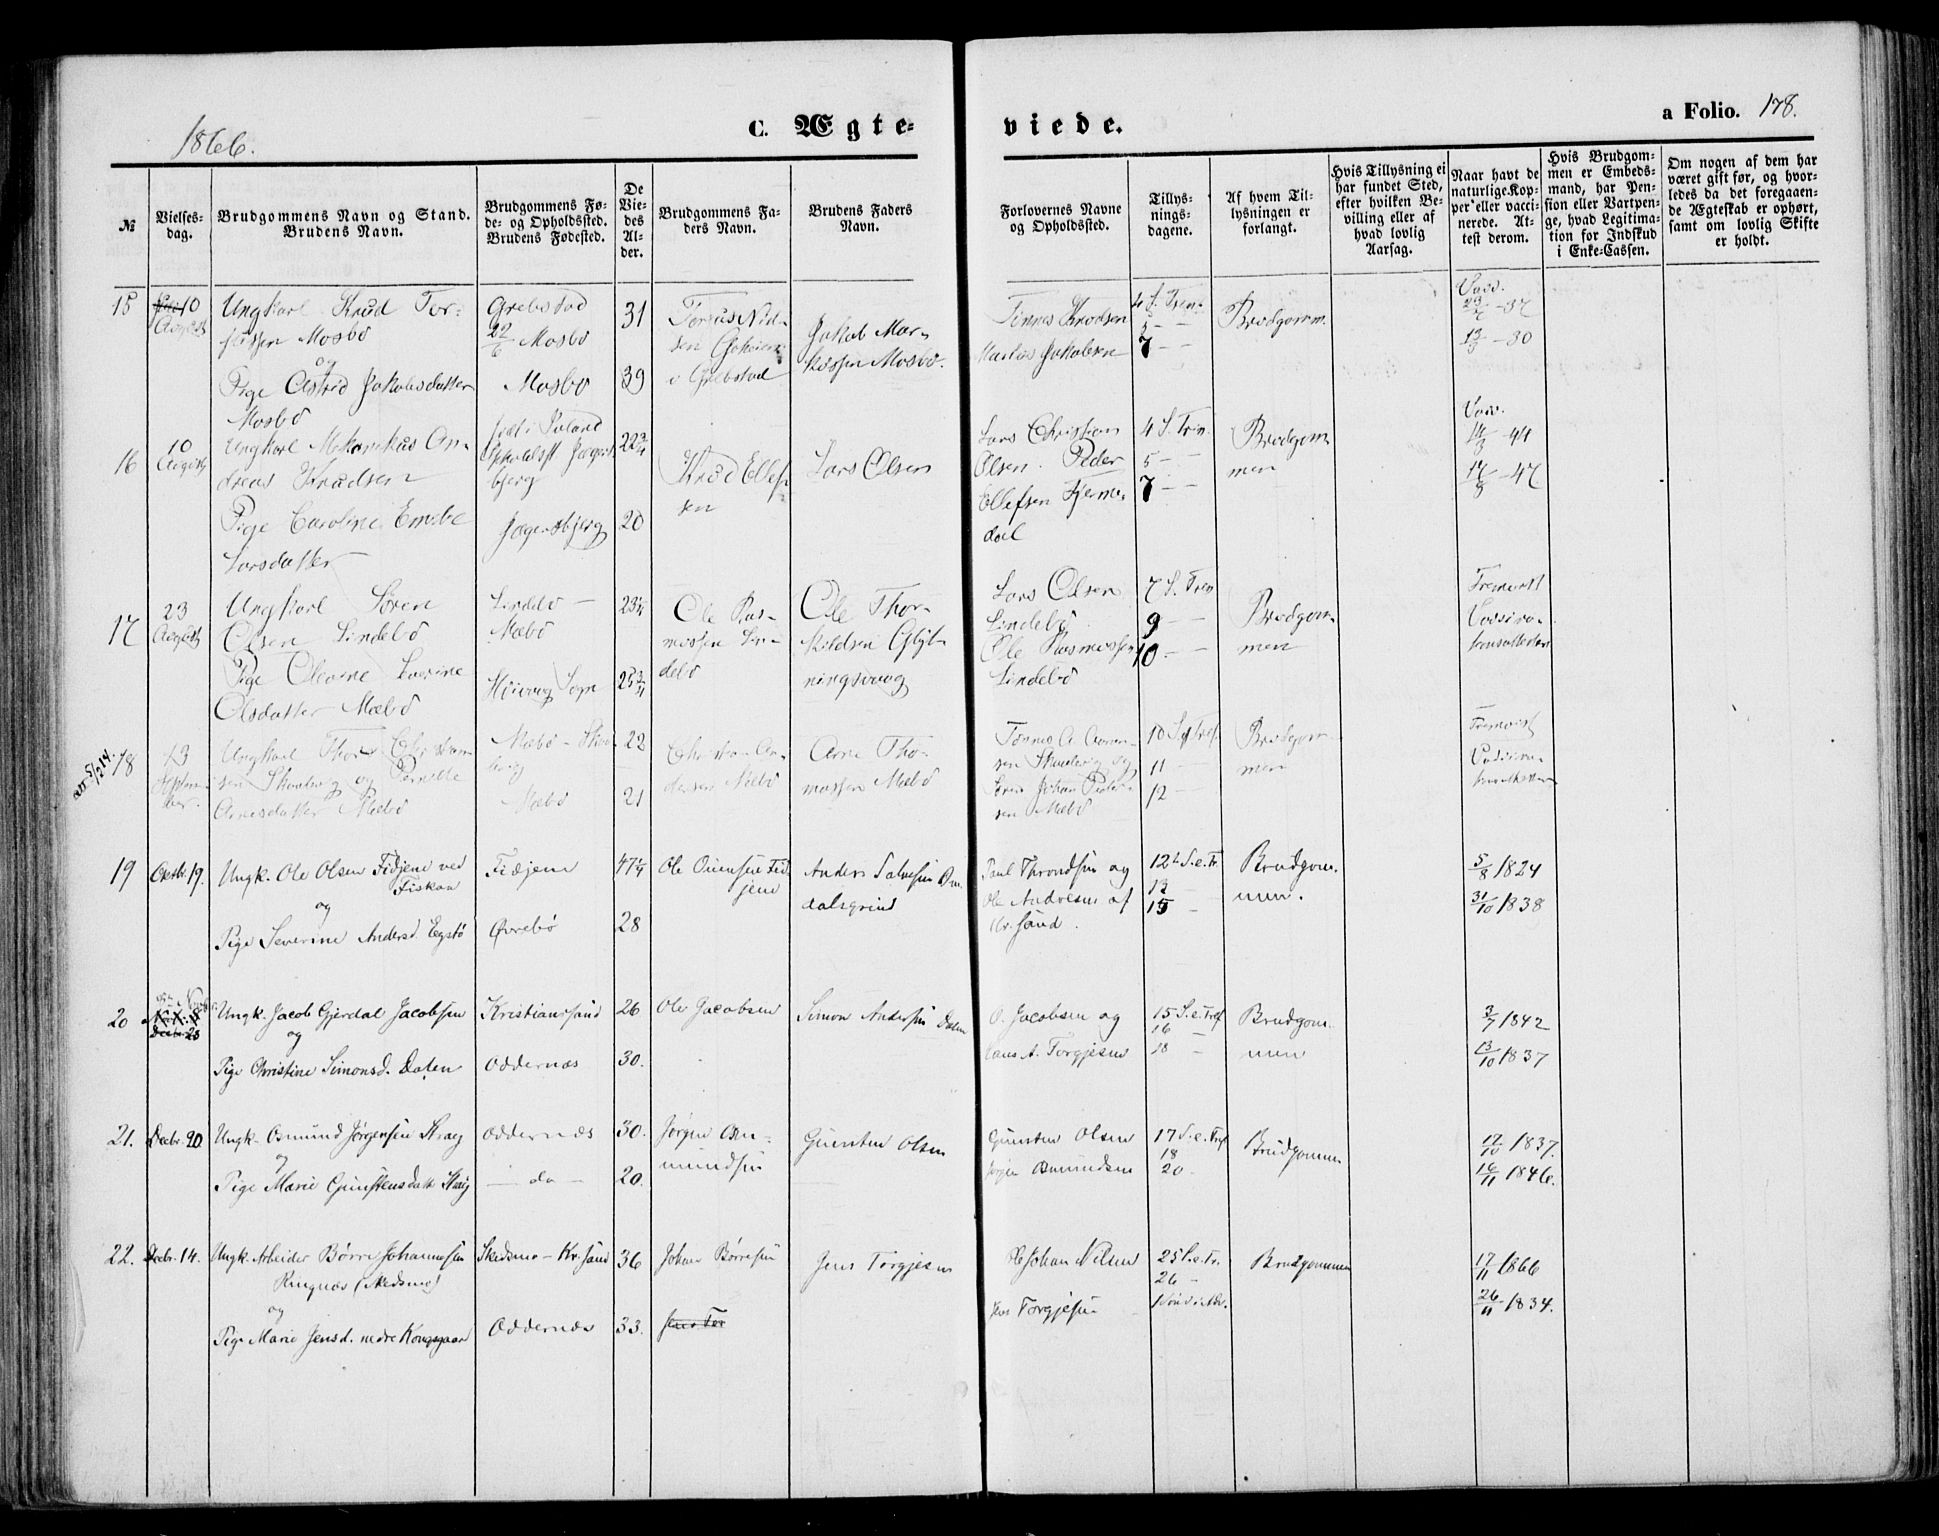 1866.
C. Ægte-
viede.
a Folio. 178.
№
Vielses-
dag.
Brudgommens Navn og Stand.
Brudens Navn.
Brudgommens Fø-
de- og Opholdssted.
Brudens Fødested.
De
Vie-
des
Al-
der.
Brudgommens Fa-
ders Navn.
Brudens Faders
Navn.
Forlovernes Navne
og Opholdssted.
Tillys-
nings-
dagene.
Af hvem Til-
lysningen er
forlangt.
Hvis Tillysning ei
har fundet Sted,
efter hvilken Be-
villing eller af
hvad lovlig
Aarsag.
Naar havt de
naturlige Kop-
per eller vacci-
nerede. At-
test derom.
Hvis Brudgom-
men er Embeds-
mand, har Pen-
sion eller Vartpen-
ge, hvad Legitima-
tion for Indskud
i Enke-Cassen.
Om nogen af dem har
været gift før, og hvor-
ledes da det foregaaen-
de Ægteskab er ophørt,
samt om lovlig Skifte
er holdt.
15
10
August
Ungkarl Knud Tor-
Mosbø
og
Pige Astrid Jakobsdatter
Mosbø
Grebstad
Mosbø
Mosbø
31
39
i Grebstad
Jakob Mar-
kussen Mosbø.
Tønnes Knudsen
Markus Jakobsen
4 S. Trin.
5 - -
7 - -
Brudgomm.
Vacc.
- 37
- 30
16
10
August
Ungkarl An-
dreas Knudsen
Pige Caroline Emilie
Larsdatter
født i
bjerg
Jægersbjerg
22 3/4
20
Knud Ellef-
sen
Lars Olsen
Lars Christian
Olsen. Peder
Ellefsen
dal
4 S. Trin.
5 - -
7 - -
Brudgom-
men
Vacc.
- 44
- 47
17
23
August
Ungkarl Søren
Olsen Lindebø
Pige Severine
Olsdatter Mæbø
Lindebø -
Mæbø
Høivaag Sogn
23 1/4
25 3/4
Ole Ras-
mussen Lin-
debø
Ole Thor-
kildsen
Lars Olsen
Lindebø
Ole Rasmussen
Lindebø
7 S. Trin
9 - -
10 - -
Brudgom-
men
Fremvist
Vaccina-
tionsattester
att 5/2 14.
18
13
Septem-
ber.
Ungkarl Thor Christen-
sen og Pernille
Arnesdatter Mæbø
Mæbø -
Mæbø
22
21
Christen An-
dersen Mæbø
Arne Tho-
massen Mæbø
Tønnes A.
sen og
Søren Johan Peder-
sen Mæbø
10 S.
11 -
12 -
Brudgom-
men
Fremvist
Vaccina-
tionsattester
19
Oktbr. 19.
Ungk. Ole Olsen Fidjene ved
Fiskaa
og
Pige Severine Andersd. Egstø
Fidjene
Øvrebø
47 1/4
28
Ole Fid-
jene
Anders Salvesen
Paul Throndsen og
Ole Andresen af
Kr.sand.
12te S. e. Tr
13
15 -
Brudgom-
men.
5/8 1824
31/10 1838
20
Ungk. Jacob Gjerdal Jacobsen
og
Pige Christine Simonsd. Dalen
Kristianssand
Oddernæs
26
30.
Ole Jacobsen
Simon Andersen Dalen
O. Jacobsen og
Hans A. Torgjesen
15 S. e. Tref
16 -
18 -
Brudgom-
men
3/7 1842
13/10 1837
21.
Decbr. 20.
Ungk. Osmund Jørgensen Straj
og
Pige Marie Gunstensdatt. Straj
Oddernæs
- do -
30.
20.
Jørgen Os-
mundsen
Gunsten Olsen
Gunsten Olsen
Jørgen Osmundsen
17 S. e. Tref
18
20 -
Brudgommen
17/10 1837.
16/11 1846.
22.
Decbr. 14.
Ungk. Arbeider Børre Johannesen
Ringnæs (Skedsmo)
og
Pige Marie Jensd. nedre Kongsgaard
Skedsmo - Kr.sand
Oddernæs
36
33.
Johan Børresen
Jens Tor
Jens Torgjesen
Johan Nilsen
Jens Torgjesen
25 S. e. Tr.
26 -
1 Sønd. i Adv.
Brudgommen
17/11 1866
26/11 1834.